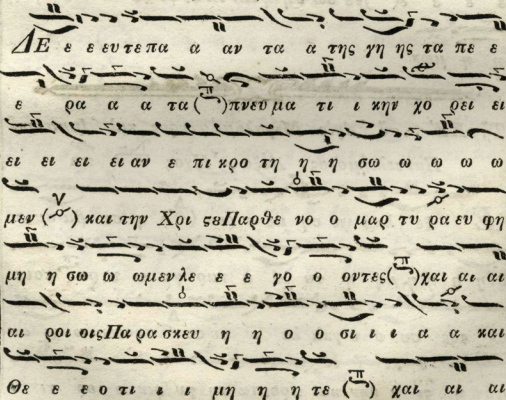 ΔΕ ε ε ευ τε πα α αν τα α της γη ης τα πε ε
ε ρα α α τα ( ) πνευ μα τι ι κην χο ρει ει
ει ει ει ει αν ε πι κρο τη η η σω ω ω ω ω
μεν ( ) και την Χρι ςε Παρθε νο ο μαρ τυ ρα ευ φη
μη η σω ω ωμεν λε ε ε γο ο οντες ( ) χαι αι αι
αι ροι οις Πα ρα σκευ η η ο ο σι ι ι α α και
Θε ε ε ο τι ι ι μη η η τε ( ) χαι αι αι